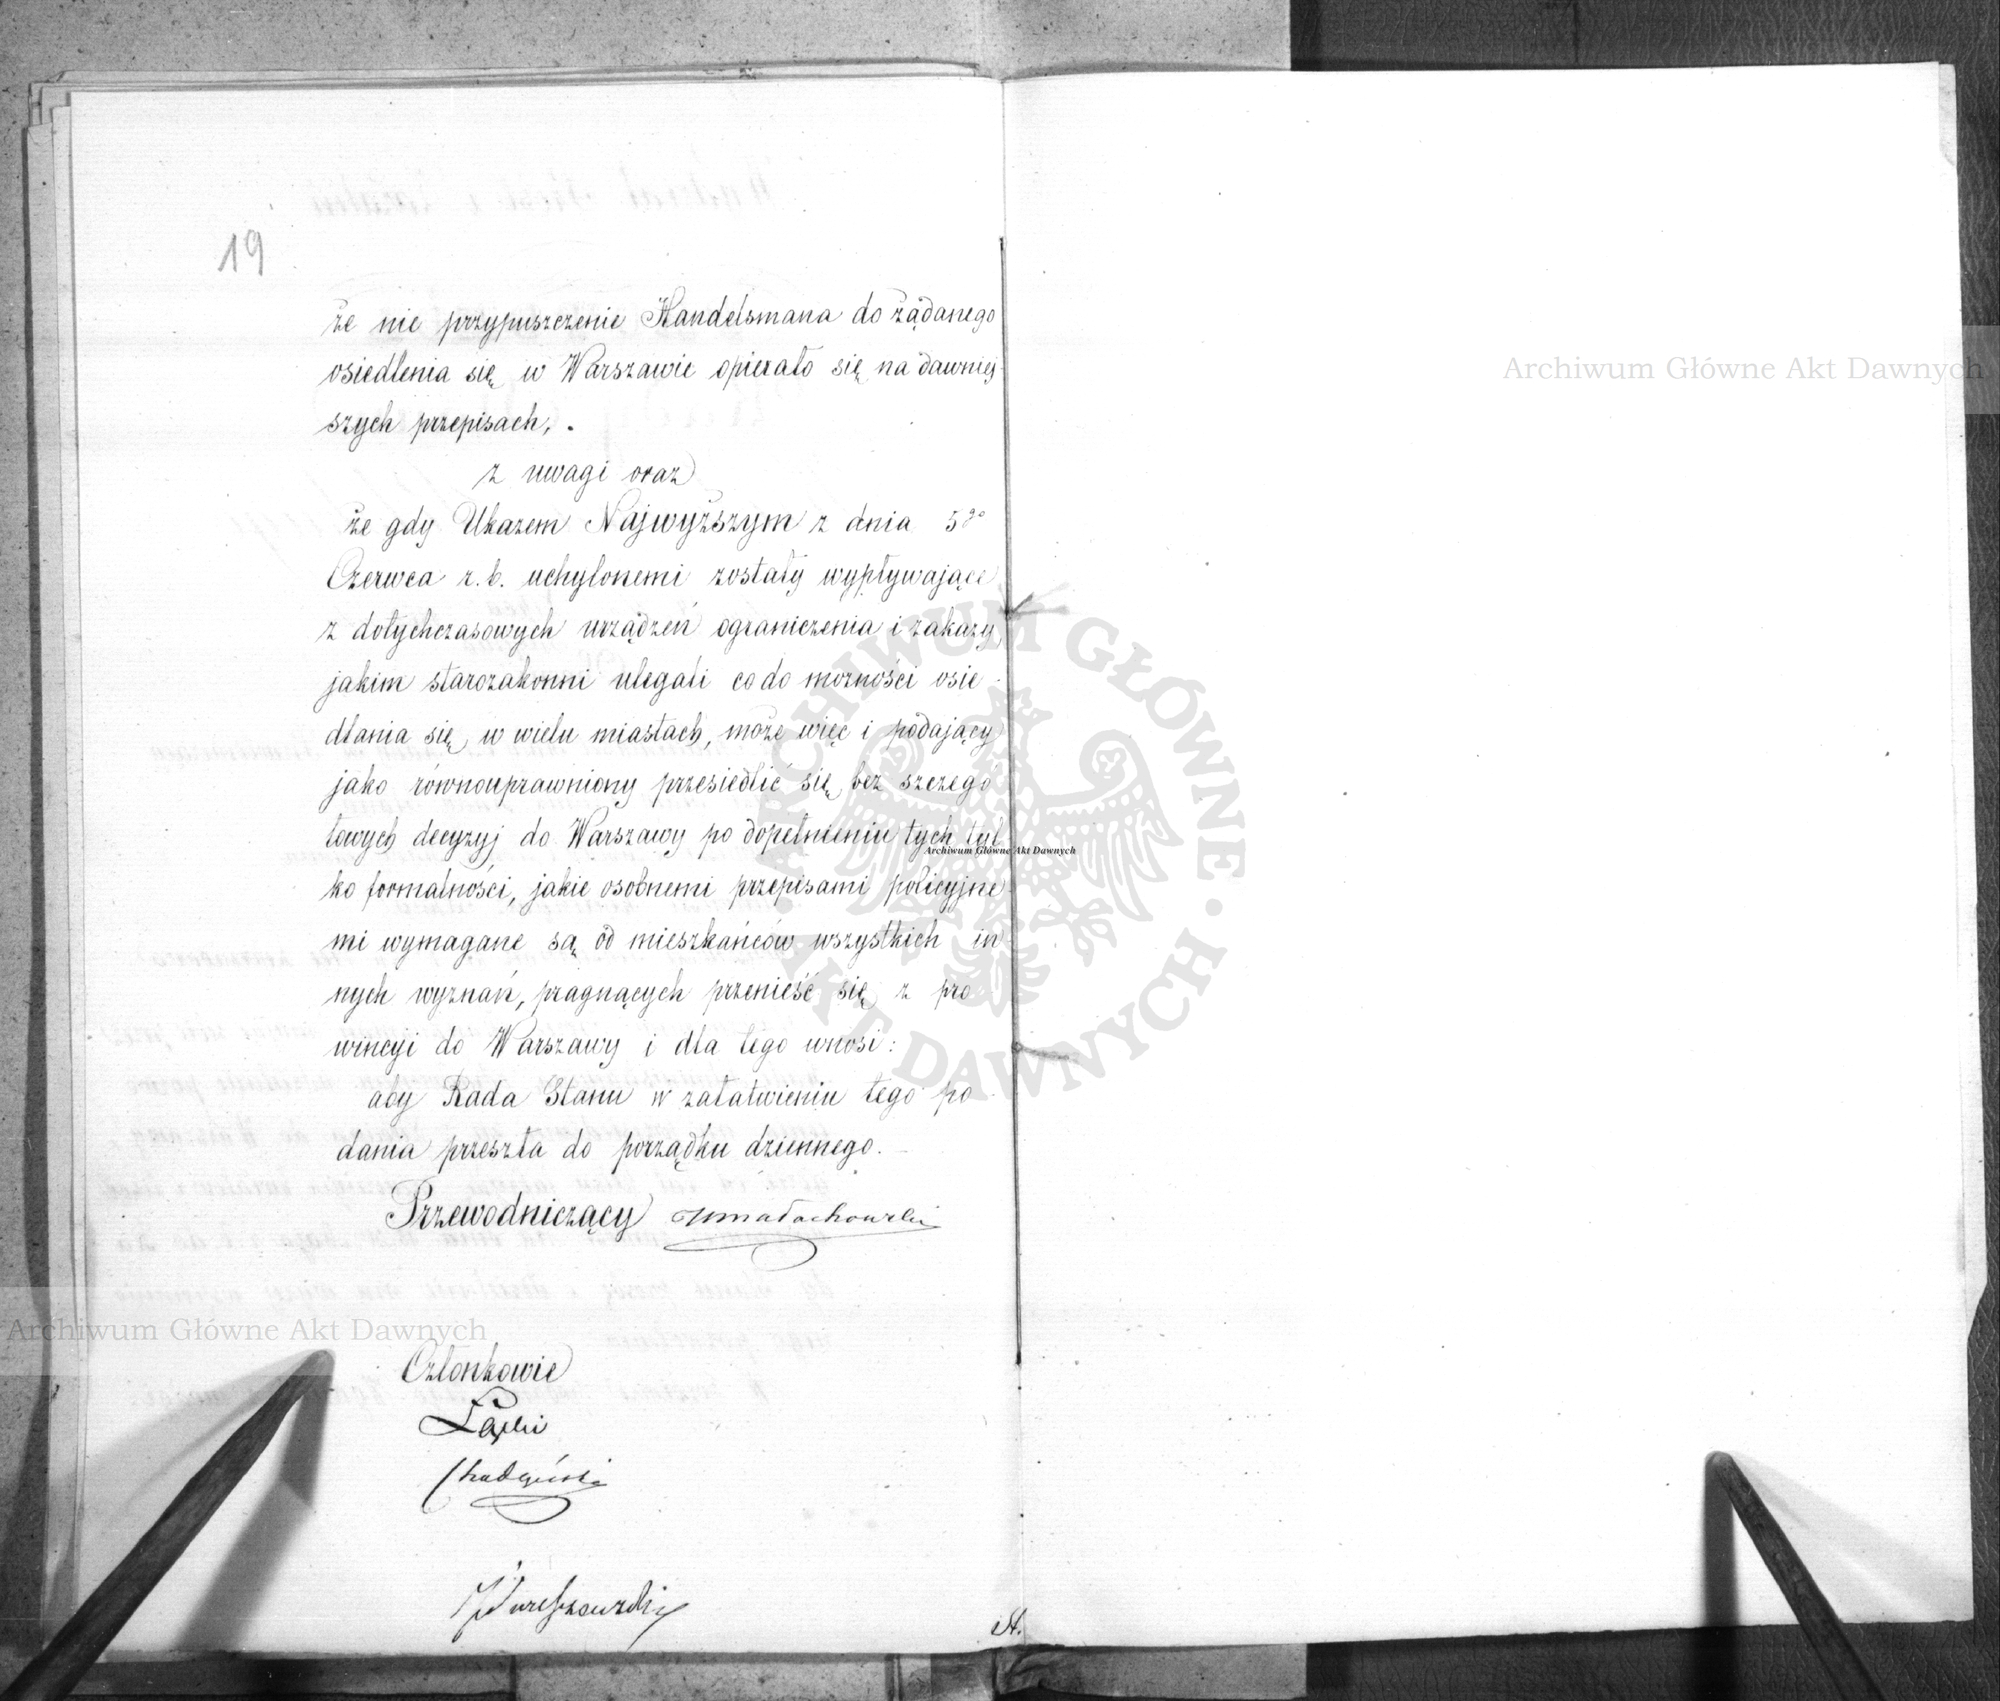 19
że nie przypuszczenie Handelsmana do żądanego
osiedlenia się w Warszawie opierało się na dawniej-
szych przepisach, .
z uwagi oraz
że gdy Ukazem Najwyższym z dnia 5go
Czerwca r. b. uchylonemi zostały wypływające
z dotychczasowych urządzeń ograniczenia i zakazy,
jakim starozakonni ulegali co do możności osie-
dlania się w wielu miastach, może więc i podający
jako równouprawniony przesiedlić się bez szczegó
łowych decyzyj do Warszawy po dopełnieniu tych tyl-
ko formalności, jakie osobnemi przepisami policyjne-
mi wymagane są od mieszkańców wszystkich in-
nych wyznań, pragnących przenieść się z pro
wincyi do Warszawy i dla tego wnosi:
aby Rada Stanu w załatwieniu tego po-
dania przeszła do porządku dziennego.
Przewodniczący Małachowski
Członkowie
Łąski
A.
Archiwum Główne Akt Dawnych
Archiwum Główne Akt Dawnych
Archiwum Główne Akt Dawnych
ARCHIWUM GŁÓWNE AKT DAWNYCH